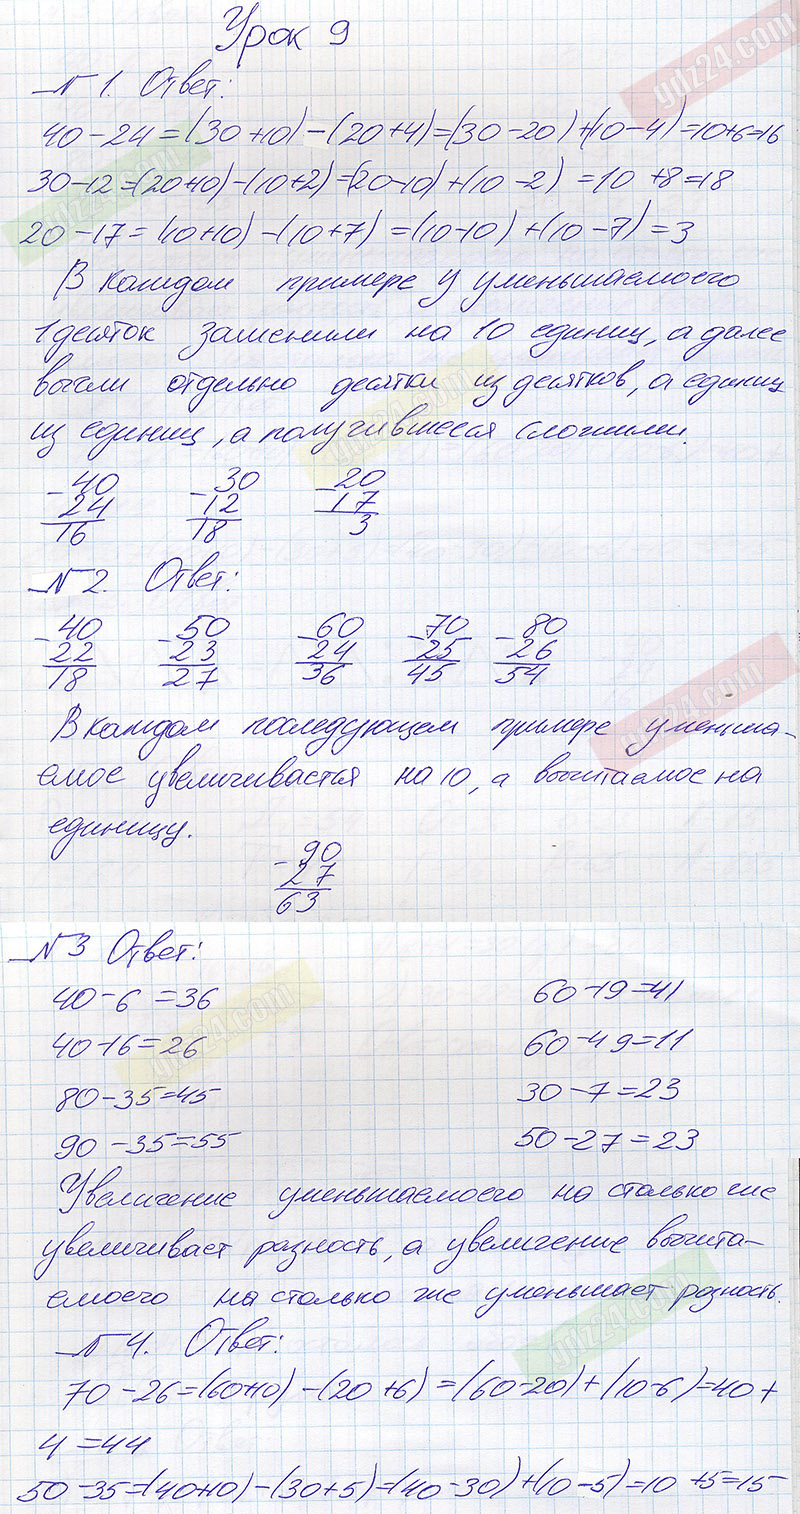 Урок 9
№ 1. Ответ:
40-24=(30+10)-(20+4)=(30-20)+(10-4)=10+6=16
30-12=(20+10)-(10+2)=(20-10)+(10-2)=10+8=18
20-17=(10+10)-(10+7)=(10-10)+(10-7)=3
В каждом примере у уменьшаемого
1 десяток заменили на 10 единиц, а далее
вычли отдельно десятки из десятков, а единиц
из единиц, а получившееся сложили.
-40 -30 -20
24 12 17
16 18 3
№ 2. Ответ:
-40 -50 -60 -70 -80
22 23 24 25 26
18 27 36 45 54
В каждом последующем примере уменьша-
емое увеличивается на 10, а вычитаемое на
единицу.
-90
27
63
№ 3 Ответ:
40-6=36 60-19=41
40-16=26 60-49=11
80-35=45 30-7=23
90-35=55 50-27=23
Увеличение уменьшаемого на столько же
увеличивает разность, а увеличение вычита-
емого на столько же уменьшает разность.
№ 4. Ответ:
70-26=(60+10)-(20+6)=(60-20)+(10-6)=40+
4=44
50-35=(40+10)-(30+5)=(40-30)+(10-5)=10+5=15
gdz24.com
gdz24.com
gdz24.com
gdz24.com
gdz24.com
gdz24.com